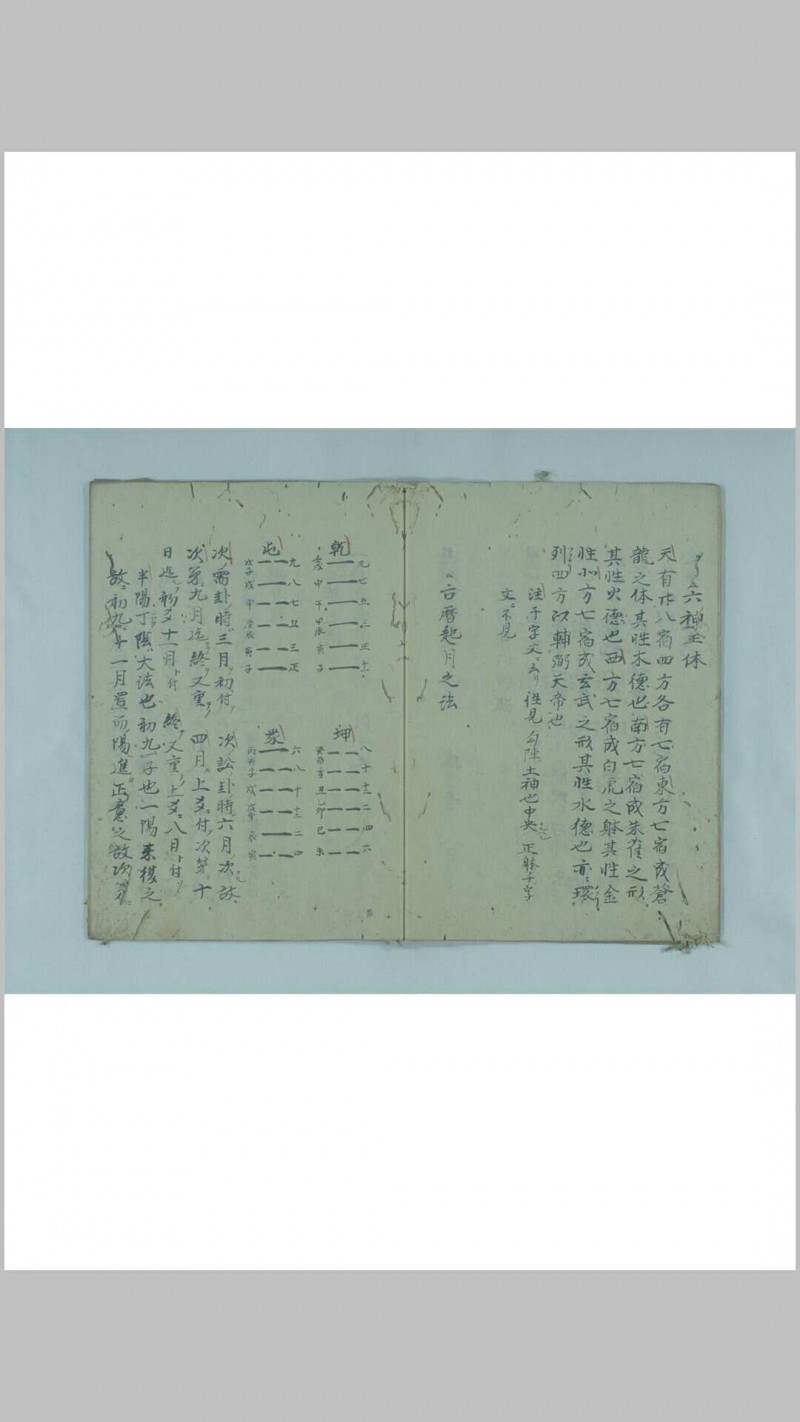 六神王体
天有廿八宿四方各有七宿東方七宿成蒼
龍之体其性木德也南方七宿成朱雀之形
其性火德也西方七宿成白虎之躰其性金
性北方七宿成玄武之形其性水德也亦環
列四方以輔弼天帝也
注千字文 性見勾陳土神也中央 正躰千字
文不見
古暦起月之法
乾
九七五三正十一
坤
八十十二二四六
未巳卯丑
屯
九八七五三正
戊子戌申庚辰寅子
蒙
六八十十二二四
丙寅子戌戊午辰寅
次需卦時三月初付 次訟卦時六月次
次第九月迄終又重 四月上爻付次第十
日迄初爻十一月付 終又重上爻八月付
半陽丁陰大法也初九子也一陽来復之
故初九十一月置而陽進正意之故次第